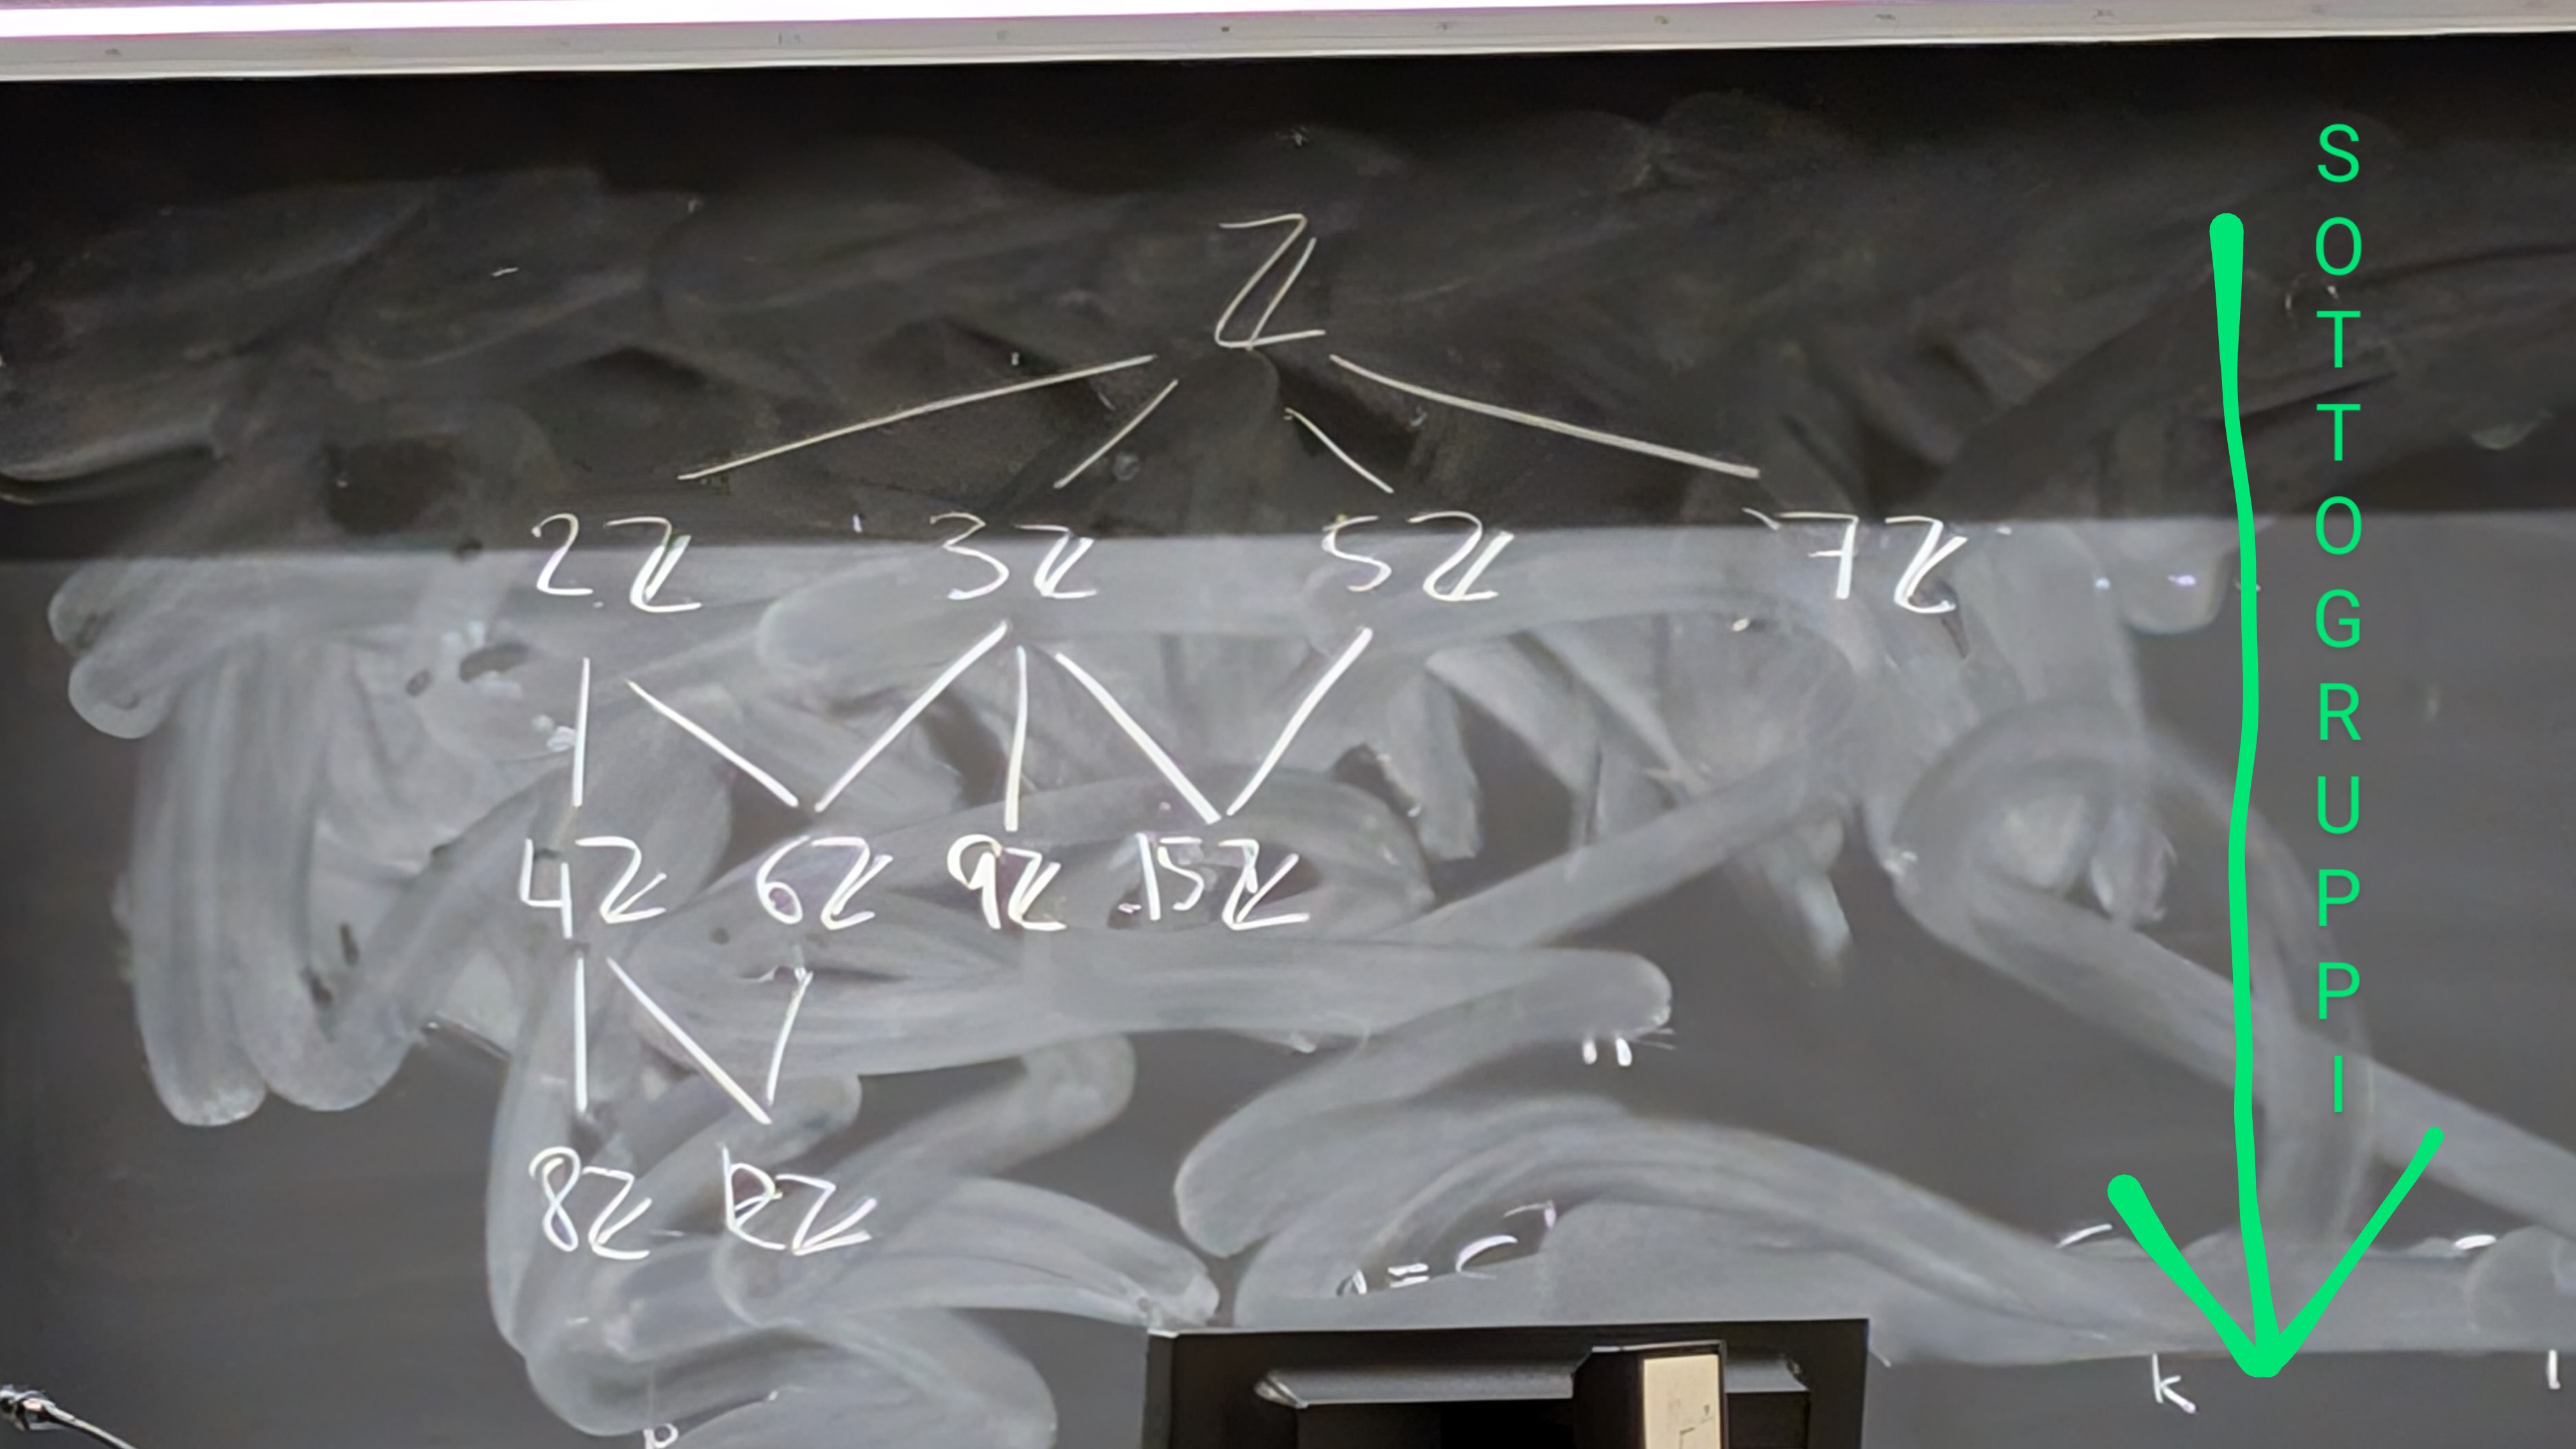 ℤ
2ℤ 3ℤ 5ℤ 7ℤ
4ℤ 6ℤ 9ℤ 15ℤ
8ℤ 12ℤ
k
SOTTOGRUPPI